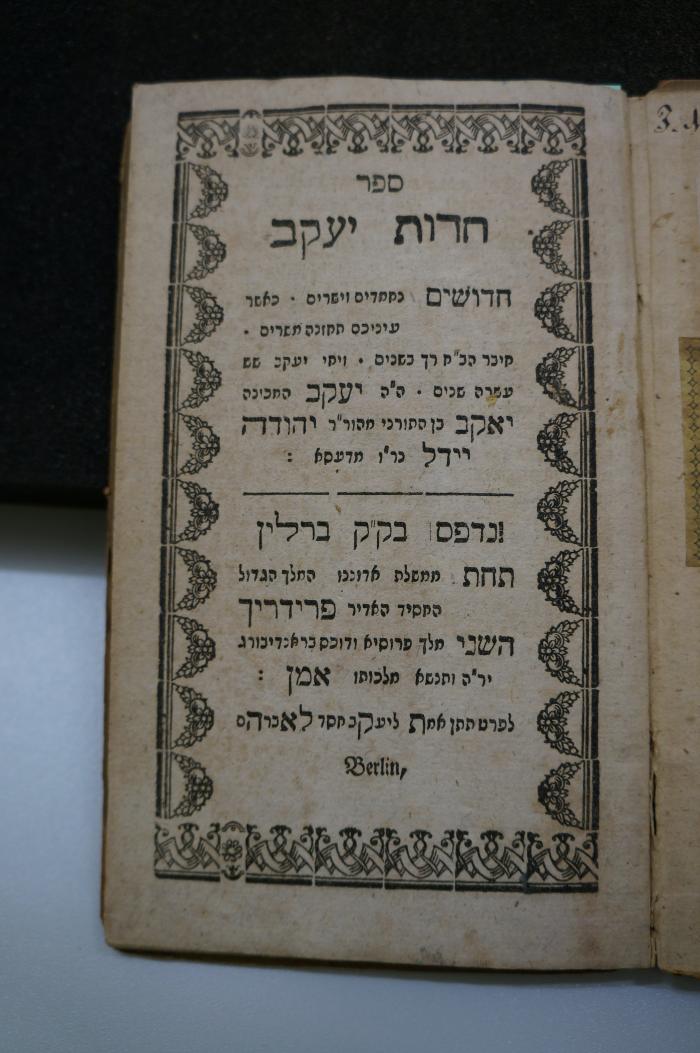 ספר
חדות יעקב
חדושים נחמדים וישרים · כאשר
עיניכם תחזנה משרים ·
חיבר הב"ח רך בשנים · ויחי יעקב שש
עשרה שנים · ה"ה יעקב המכונה
יאקב בן התורני מהור"ר יהודה
יידל כר"ו מדעסא :
נדפס בק"ק ברלין
תחת ממשלת אדוננו המלך הגדול
החסיד האדיר פרידריך
השני מלך פרוסיא ודוכס בראנדיבורג
יר"ה ותנשא מלכותו אמן :
לפרט תתן אמת ליעקב חסד לאברהם
Berlin,